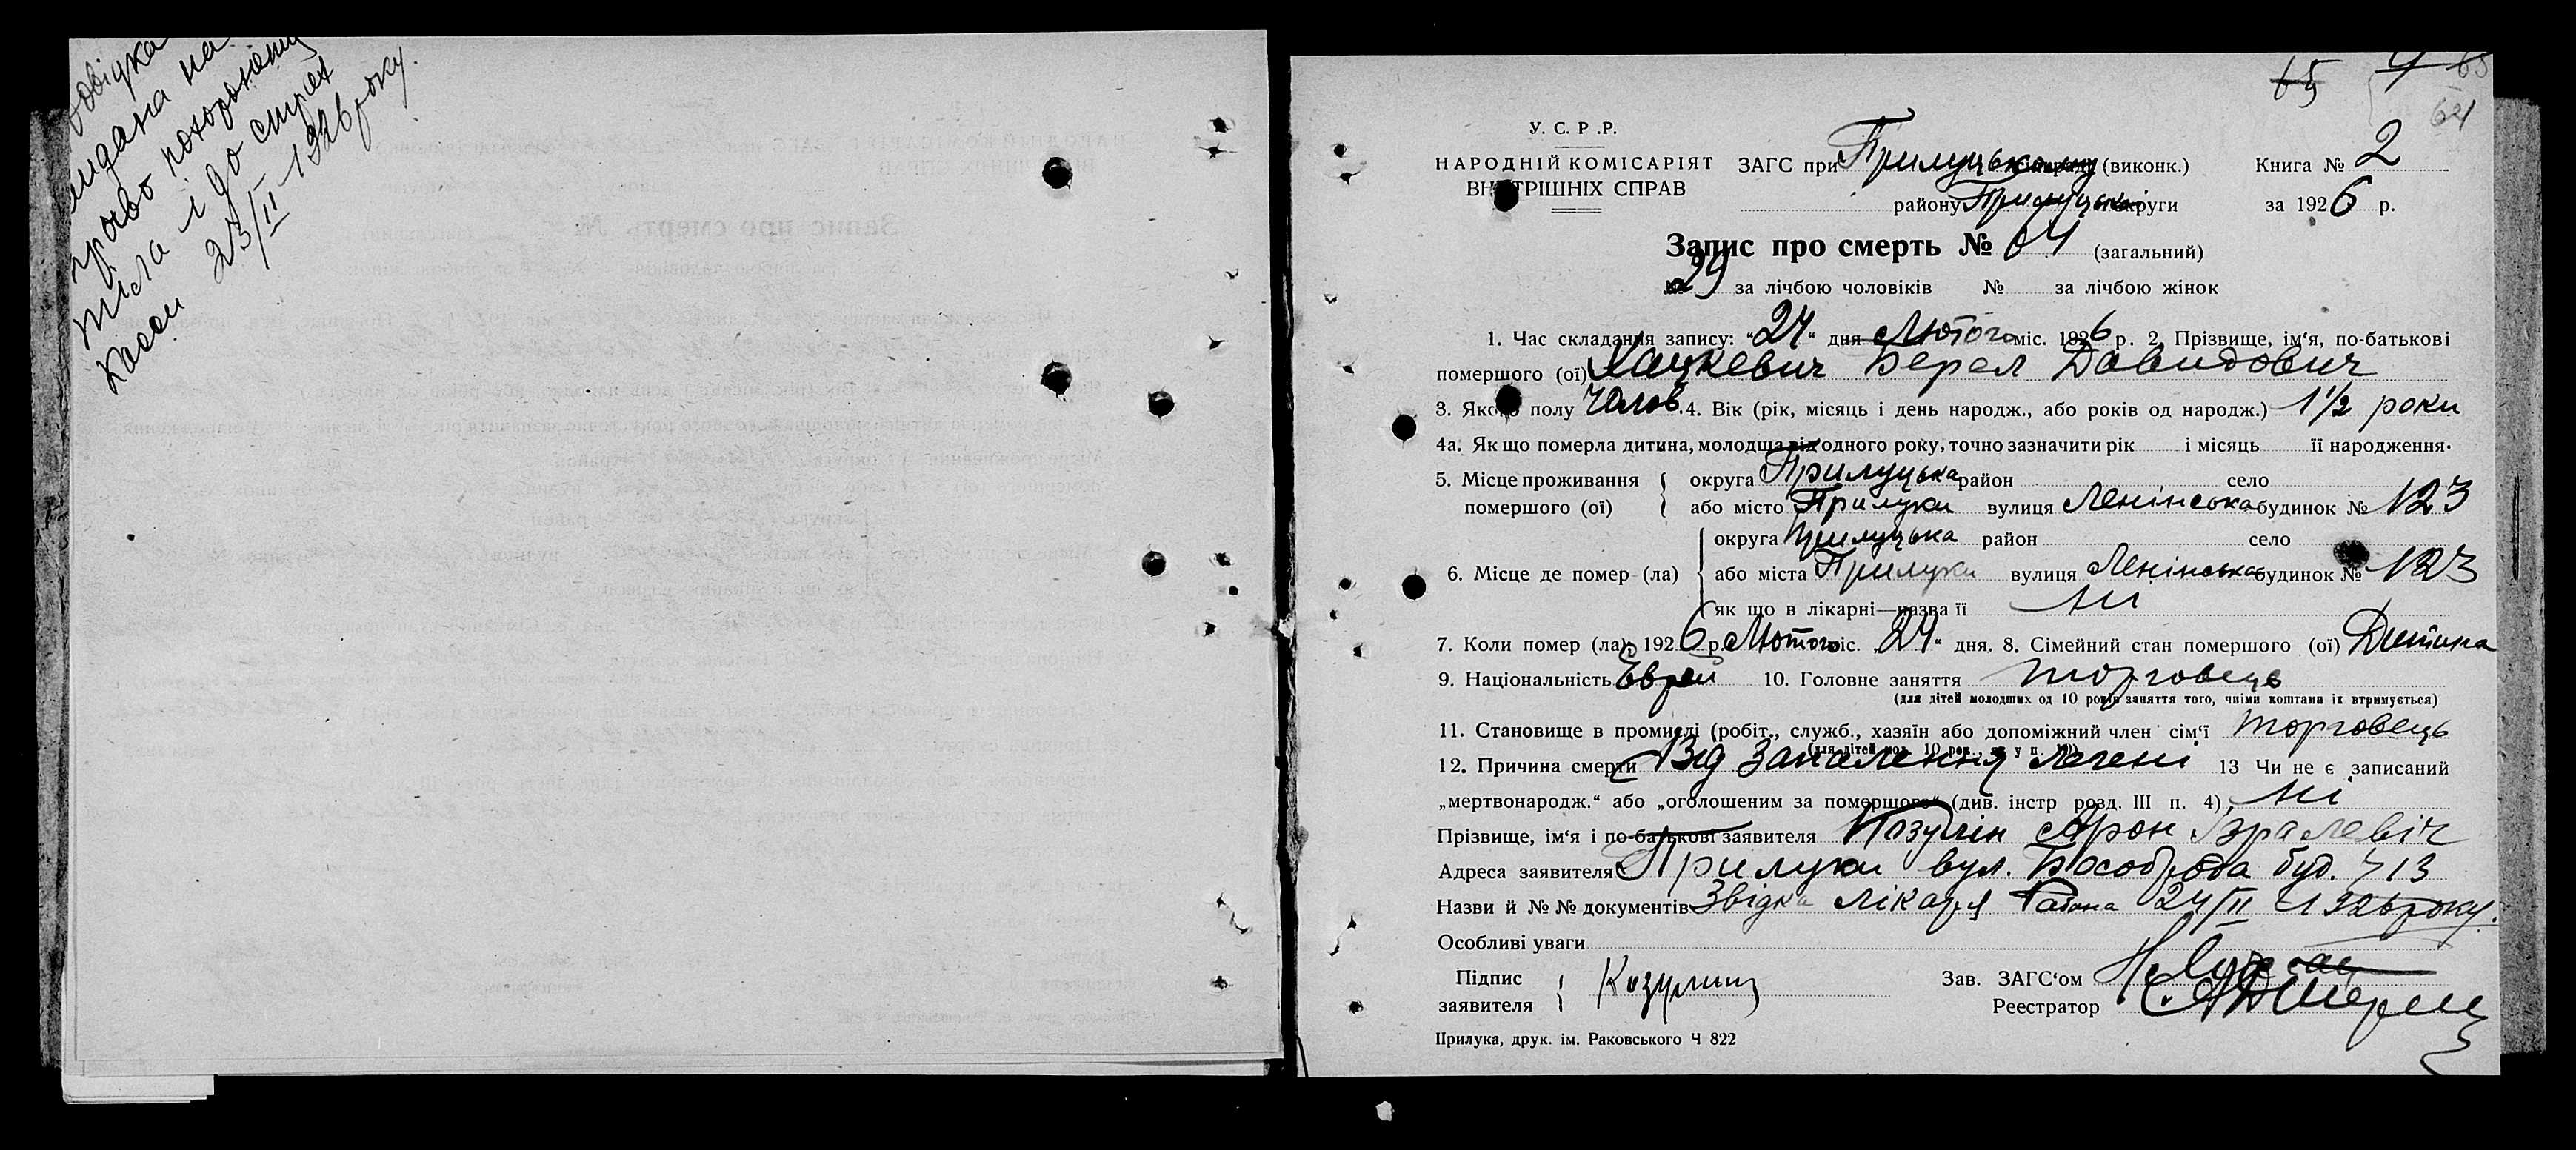 видана на
право похоронення
тіла і до страх
каси 23/II 1926 року.
65
64
У. С. Р. Р.
НАРОДНІЙ КОМІСАРІЯТ
ВНУТРІШНІХ СПРАВ
ЗАГС при Прилуцькому (виконк.)
Книга № 2
району Прилуцької округи
за 1926 р.
Запис про смерть № 64 (загальний)
№ 29 за лічбою чоловіків № за лічбою жінок
1. Час складання запису: "24" дня Лютого міс. 1926 р. 2. Прізвище, ім'я, по-батькові
помершого (ої) Хацкевич Берел Давидович
3. Якого полу Чолов. 4. Вік (рік, місяць і день народж., або років од народж.) 1½ роки
4а. Як що померла дитина, молодша від одного року, точно зазначити рік і місяць її народження.
5. Місце проживання помершого (ої) округа Прилуцька район село
або місто Прилуки вулиця Ленінська будинок № 123
округа Прилуцька район село
6. Місце де помер (ла) або міста Прилуки вулиця Ленінська будинок № 123
як що в лікарні—назва її ні
7. Коли помер (ла) 1926 р. Лютого міс. „24" дня. 8. Сімейний стан помершого (ої) Дитина
9. Національність Еврей 10. Головне заняття торговець
(для дітей молодших од 10 років заняття того, чиїми коштами їх втримується)
11. Становище в промислі (робіт., служб., хазяїн або допоміжний член сім'ї торговець
(для дітей мол. 10 рок., як у п. 10)
12. Причина смерти Від Запалення легені 13 Чи не є записаний
„мертвонародж." або „оголошеним за помершого" (див. інстр розд. III п. 4) ні
Прізвище, ім'я і по-батькові заявителя Козулін Арон Ізралевіч
Адреса заявителя Прилуки вул. буд. 713
Назви й №№ документів Звідка лікаря 24/II 1926 року.
Особливі уваги
Підпис заявителя Козулин
Зав. ЗАГС'ом
Реестратор
Прилука, друк. ім. Раковського Ч 822